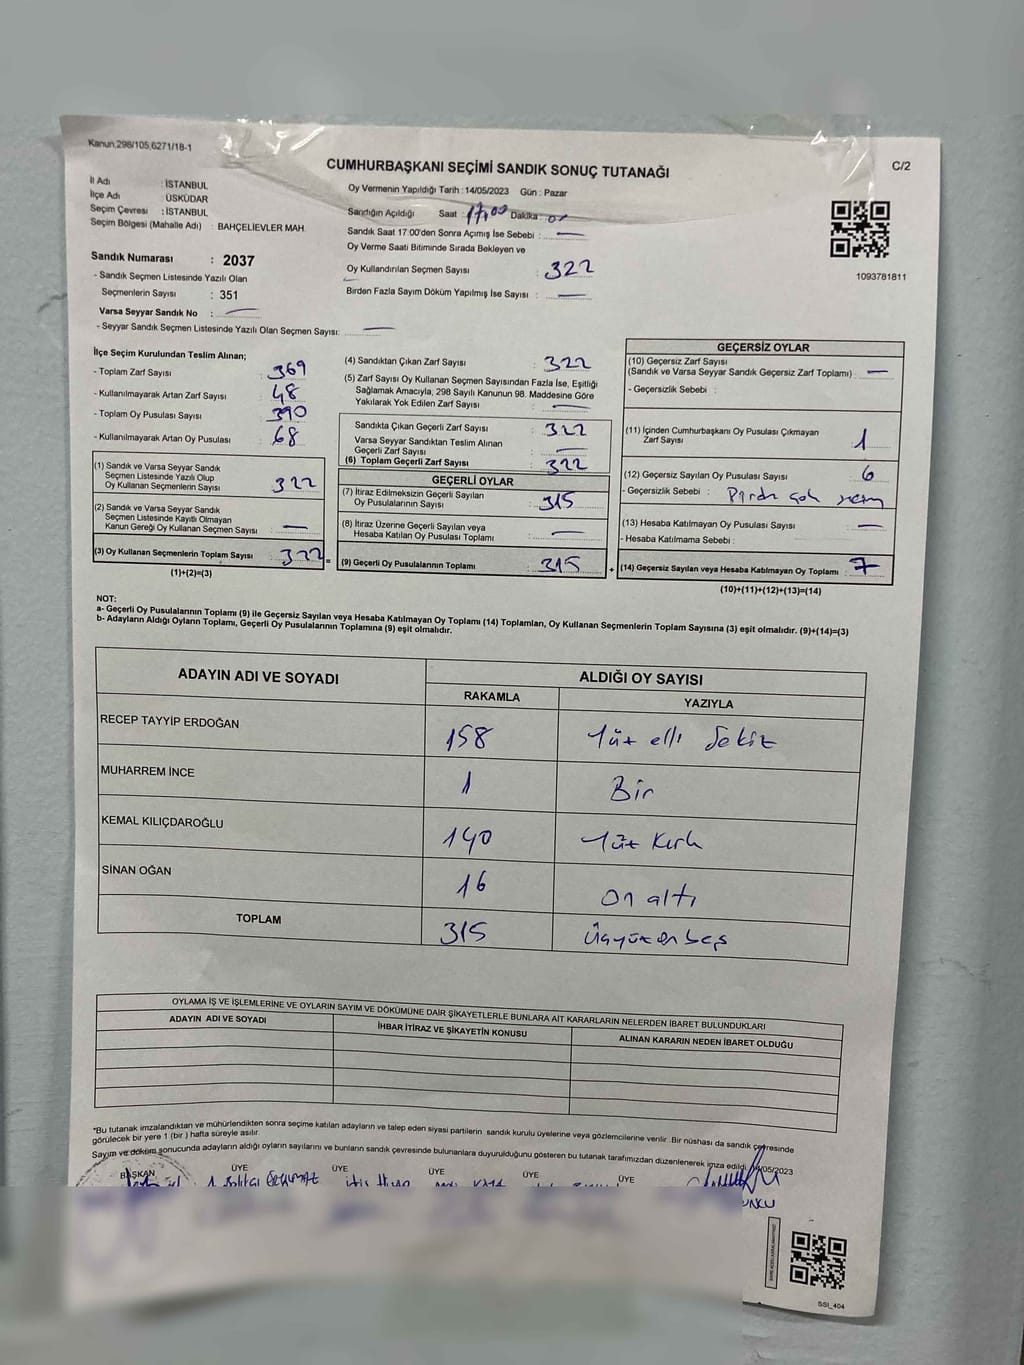 Kanun,298/105,6271/18-1
C/2
CUMHURBAŞKANI SEÇİMİ SANDIK SONUÇ TUTANAĞI
İl Adı : İSTANBUL
İlçe Adı : ÜSKÜDAR
Seçim Çevresi : İSTANBUL
Seçim Bölgesi (Mahalle Adı) : BAHÇELİEVLER MAH.
Sandık Numarası : 2037
- Sandık Seçmen Listesinde Yazılı Olan
Seçmenlerin Sayısı : 351
Varsa Seyyar Sandık No : —
- Seyyar Sandık Seçmen Listesinde Yazılı Olan Seçmen Sayısı: —
Oy Vermenin Yapıldığı Tarih : 14/05/2023 Gün : Pazar
Sandığın Açıldığı Saat : 17,00 Dakika
Sandık Saat 17:00'den Sonra Açımış İse Sebebi : —
Oy Verme Saati Bitiminde Sırada Bekleyen ve
Oy Kullandırılan Seçmen Sayısı : 322
Birden Fazla Sayım Döküm Yapılmış İse Sayısı : —
1093781811
İlçe Seçim Kurulundan Teslim Alınan;
- Toplam Zarf Sayısı : 369
- Kullanılmayarak Artan Zarf Sayısı : 48
- Toplam Oy Pusulası Sayısı : 390
- Kullanılmayarak Artan Oy Pusulası : 68
(1) Sandık ve Varsa Seyyar Sandık
Seçmen Listesinde Yazılı Olup
Oy Kullanan Seçmenlerin Sayısı : 322
(2) Sandık ve Varsa Seyyar Sandık
Seçmen Listesinde Kayıtlı Olmayan
Kanun Gereği Oy Kullanan Seçmen Sayısı : —
(3) Oy Kullanan Seçmenlerin Toplam Sayısı : 322
(1)+(2)=(3)
=
(4) Sandıktan Çıkan Zarf Sayısı : 322
(5) Zarf Sayısı Oy Kullanan Seçmen Sayısından Fazla İse, Eşitliği
Sağlamak Amacıyla, 298 Sayılı Kanunun 98. Maddesine Göre
Yakılarak Yok Edilen Zarf Sayısı : —
Sandıkta Çıkan Geçerli Zarf Sayısı : 322
Varsa Seyyar Sandıktan Teslim Alınan
Geçerli Zarf Sayısı : —
(6) Toplam Geçerli Zarf Sayısı : 322
GEÇERLİ OYLAR
(7) İtiraz Edilmeksizin Geçerli Sayılan
Oy Pusulalarının Sayısı : 315
(8) İtiraz Üzerine Geçerli Sayılan veya
Hesaba Katılan Oy Pusulası Toplamı : —
(9) Geçerli Oy Pusulalarının Toplamı : 315
+
GEÇERSİZ OYLAR
(10) Geçersiz Zarf Sayısı
(Sandık ve Varsa Seyyar Sandık Geçersiz Zarf Toplamı) : —
- Geçersizlik Sebebi :
(11) İçinden Cumhurbaşkanı Oy Pusulası Çıkmayan
Zarf Sayısı : 1
(12) Geçersiz Sayılan Oy Pusulası Sayısı : 6
- Geçersizlik Sebebi :
(13) Hesaba Katılmayan Oy Pusulası Sayısı : —
- Hesaba Katılmama Sebebi :
(14) Geçersiz Sayılan veya Hesaba Katılmayan Oy Toplamı : 7
(10)+(11)+(12)+(13)=(14)
NOT:
a- Geçerli Oy Pusulalarının Toplamı (9) ile Geçersiz Sayılan veya Hesaba Katılmayan Oy Toplamı (14) Toplamları, Oy Kullanan Seçmenlerin Toplam Sayısına (3) eşit olmalıdır. (9)+(14)=(3)
b- Adayların Aldığı Oyların Toplamı, Geçerli Oy Pusulalarının Toplamına (9) eşit olmalıdır.
ADAYIN ADI VE SOYADI
ALDIĞI OY SAYISI
RAKAMLA YAZIYLA
RECEP TAYYİP ERDOĞAN 158 Yüz elli Sekiz
MUHARREM İNCE 1 Bir
KEMAL KILIÇDAROĞLU 140 Yüz Kırk
SİNAN OĞAN 16 on altı
TOPLAM 315 üçyüzonbeş
OYLAMA İŞ VE İŞLEMLERİNE VE OYLARIN SAYIM VE DÖKÜMÜNE DAİR ŞİKAYETLERLE BUNLARA AİT KARARLARIN NELERDEN İBARET BULUNDUKLARI
ADAYIN ADI VE SOYADI İHBAR İTİRAZ VE ŞİKAYETİN KONUSU ALINAN KARARIN NEDEN İBARET OLDUĞU
"Bu tutanak imzalandıktan ve mühürlendikten sonra seçime katılan adayların ve talep eden siyasi partilerin sandık kurulu üyelerine veya gözlemcilerine verilir. Bir nüshası da sandık çevresinde
görülecek bir yere 1 (bir) hafta süreyle asılır.
Sayım ve döküm sonucunda adayların aldığı oyların sayılarını ve bunların sandık çevresinde bulunanlara duyurulduğunu gösteren bu tutanak tarafımızdan düzenlenerek imza edildi. 14/05/2023
BAŞKAN ÜYE ÜYE ÜYE ÜYE ÜYE
SSI_404